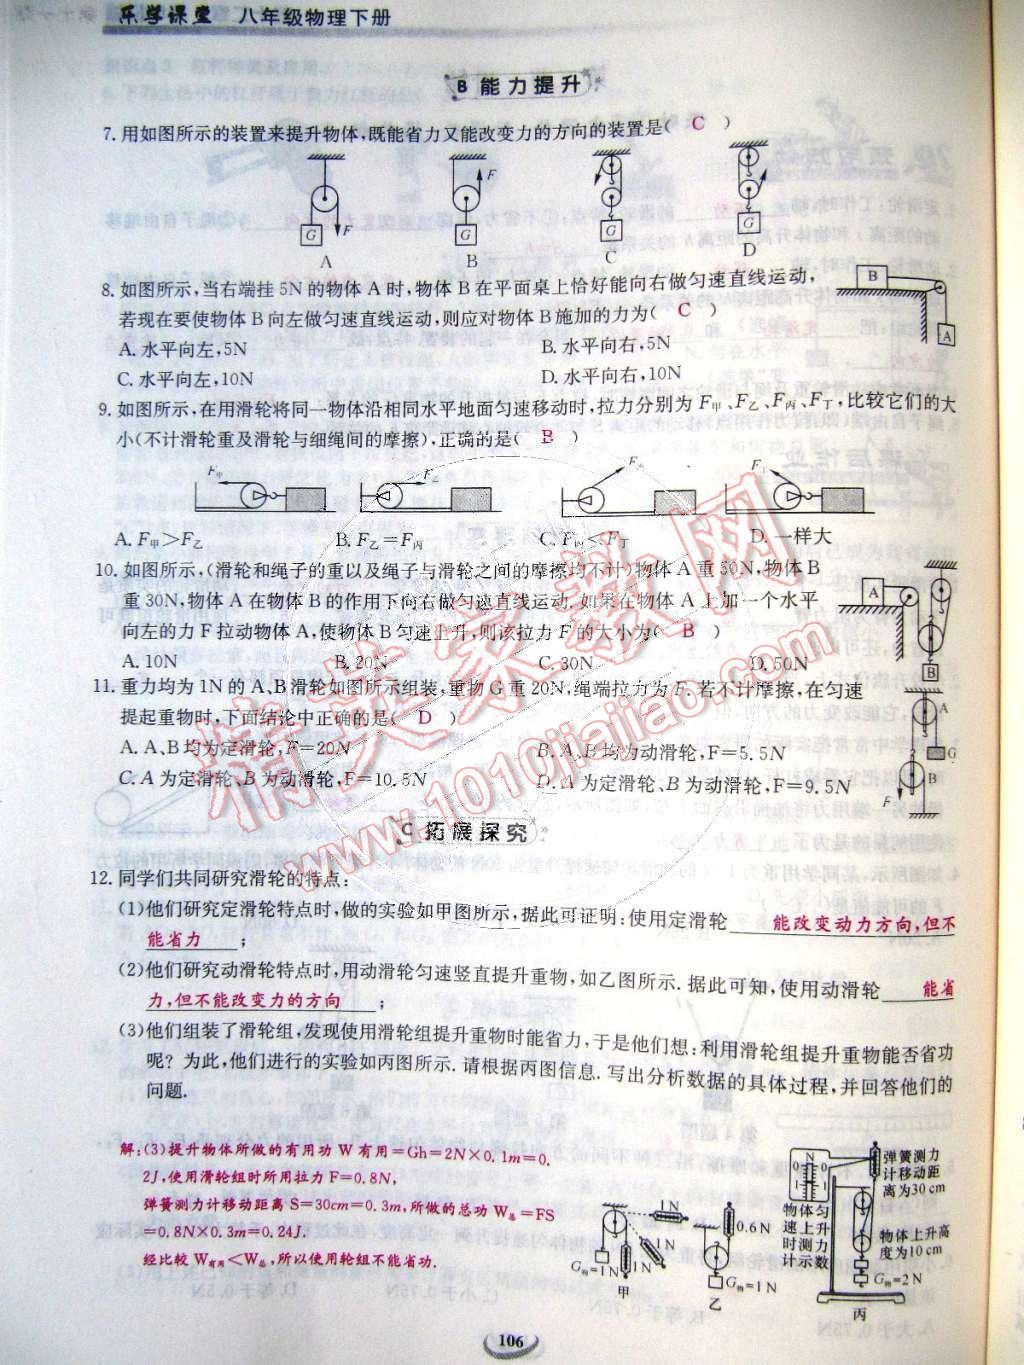 乐学课堂 八年级物理下册
B 能力提升
7.用如图所示的装置来提升物体,既能省力又能改变力的方向的装置是( C )
F
F
F
F
G
G
G
G
A
B
C
D
8.如图所示,当右端挂5N的物体A时,物体B在平面桌上恰好能向右做匀速直线运动,
若现在要使物体B向左做匀速直线运动,则应对物体B施加的力为( C )
A.水平向左,5N
B.水平向右,5N
C.水平向左,10N
D.水平向右,10N
B
A
9.如图所示,在用滑轮将同一物体沿相同水平地面匀速移动时,拉力分别为F甲、F乙、F丙、F丁,比较它们的大
小(不计滑轮重及滑轮与细绳间的摩擦),正确的是( B )
F甲
F乙
F丁
A.F甲>F乙
B.F乙=F丙
C.F丙<F丁
D.一样大
10.如图所示,(滑轮和绳子的重以及绳子与滑轮之间的摩擦均不计)物体A重50N,物体B
重30N,物体A在物体B的作用下向右做匀速直线运动.如果在物体A上加一个水平
向左的力F拉动物体A,使物体B匀速上升,则该拉力F的大小为( B )
A.10N
B.20N
C.30N
D.50N
A
B
11.重力均为1N的A、B滑轮如图所示组装,重物G重20N,绳端拉力为F.若不计摩擦,在匀速
提起重物时,下面结论中正确的是( D )
A.A、B均为定滑轮,F=20N
B.A、B均为动滑轮,F=5.5N
C.A为定滑轮、B为动滑轮,F=10.5N
D.A为定滑轮、B为动滑轮,F=9.5N
A
G
B
F
C 拓展探究
12.同学们共同研究滑轮的特点:
(1)他们研究定滑轮特点时,做的实验如甲图所示,据此可证明:使用定滑轮 能改变动力方向,但不
能省力 ;
(2)他们研究动滑轮特点时,用动滑轮匀速竖直提升重物,如乙图所示.据此可知,使用动滑轮 能省
力,但不能改变力的方向 ;
(3)他们组装了滑轮组,发现使用滑轮组提升重物时能省力,于是他们想:利用滑轮组提升重物能否省功
呢?为此,他们进行的实验如丙图所示.请根据丙图信息.写出分析数据的具体过程,并回答他们的
问题.
解:(3)提升物体所做的有用功W有用=Gh=2N×0.1m=0.
2J,使用滑轮组时所用拉力F=0.8N,
弹簧测力计移动距离S=30cm=0.3m,所做的总功W总=FS
=0.8N×0.3m=0.24J.
经比较W有用<W总,所以使用轮组不能省功.
1N
1N
1N
G物=1N
甲
0.6N
G物=1N
乙
N
0
0
1
1
物体匀
速上升
时测力
计示数
弹簧测力
计移动距
离为30cm
物体上升高
度为10cm
G物=2N
丙
106
精英家教网
www.1010jiajiao.com